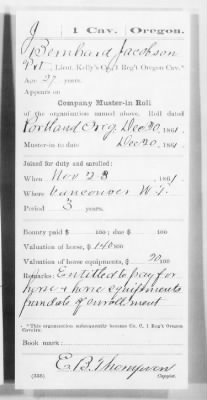 J | 1 Cav. | Oregon.
Bernhard Jacobson
Pvt., Lieut. Kelly's Co., 1 Reg't Oregon Cav.*
Age 27 years.
Appears on
Company Muster-in Roll
of the organization named above. Roll dated
Portland Oreg. Dec 20, 1861.
Muster-in to date Dec 20, 1861.
Joined for duty and enrolled:
When Nov 23, 1861.
Where Vancouver W.T.
Period 3 years.
Bounty paid $ 100; due $ 100
Valuation of horse, $ 140 100
Valuation of horse equipments, $ 20 100
Remarks: Entitled to pay for
horse & horse equipments
from date of enrollment
*This organization subsequently became Co. C, 1 Reg't Oregon
Cavalry.
Book mark:
E. B. Thompson
(358) Copyist.